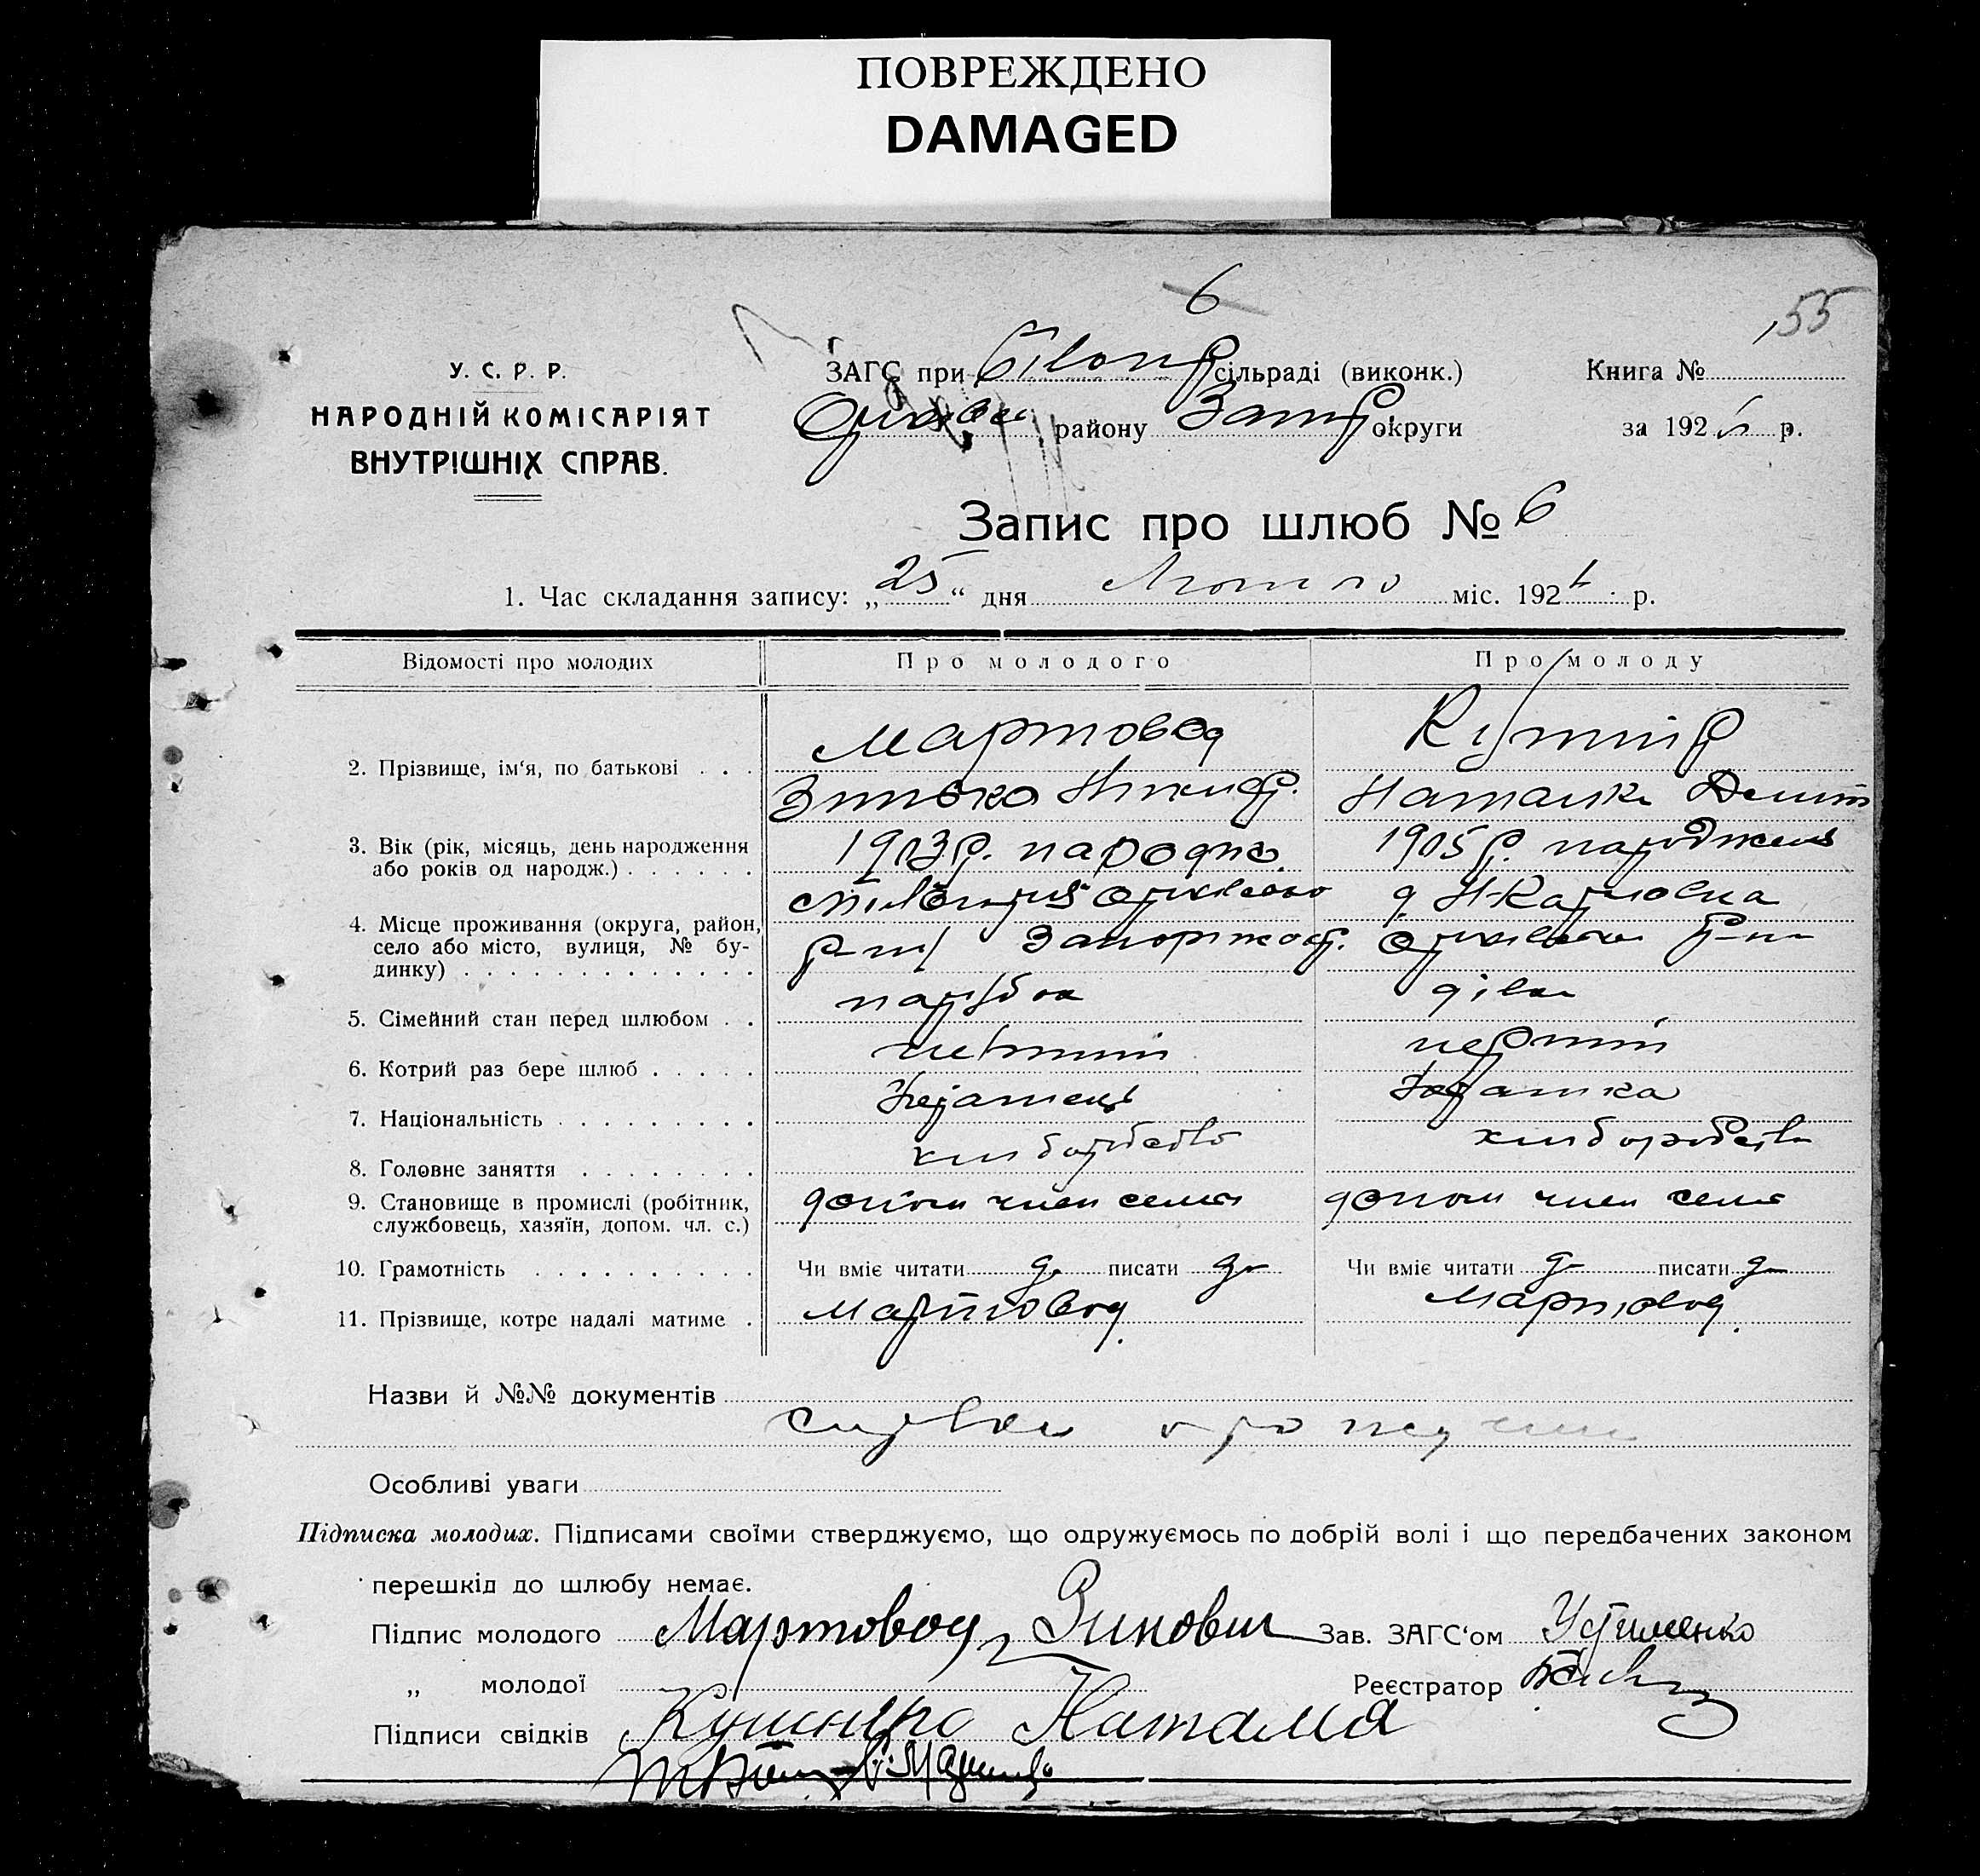 ПОВРЕЖДЕНО
DAMAGED
6
55
У. С. Р. Р.
НАРОДНІЙ КОМІСАРІЯТ
ВНУТРІШНІХ СПРАВ.
ЗАГС при сільраді (виконк.)
Книга №
району Запор округи
за 192 р.
Запис про шлюб № 6
1. Час складання запису: „25“ дня Лютого міс. 192 р.
Відомості про молодих
Про молодого
Про молоду
2. Прізвище, ім‘я, по батькові . . .
Мартовод
Зинько Никиф.
Кушнір
Наталка
3. Вік (рік, місяць, день народження
або років од народж.) . . . . . .
1903 р.
1905 р. народження
4. Місце проживання (округа, район,
село або місто, вулиця, № бу-
динку) . . . . . . . . . . . . .
р-ну
5. Сімейний стан перед шлюбом . .
парубок
дівка
6. Котрий раз бере шлюб . . . . .
перший
перший
7. Національність . . . . . . . . .
8. Головне заняття . . . . . . . .
хліборобство
хліборобство
9. Становище в промислі (робітник,
службовець, хазяїн, допом. чл. с.)
допом член семьї
допом член семьї
10. Грамотність . . . . . . . . . .
Чи вміє читати да писати да
Чи вміє читати да писати да
11. Прізвище, котре надалі матиме .
Мартовод
Мартовод
Назви й №№ документів
справки про
Особливі уваги
Підписка молодих. Підписами своїми стверджуємо, що одружуємось по добрій волі і що передбачених законом
перешкід до шлюбу немає.
Підпис молодого Мартовод Зиновий
Зав. ЗАГС‘ом Устименко
„ молодої
Реєстратор
Підписи свідків Кушніра Наталия